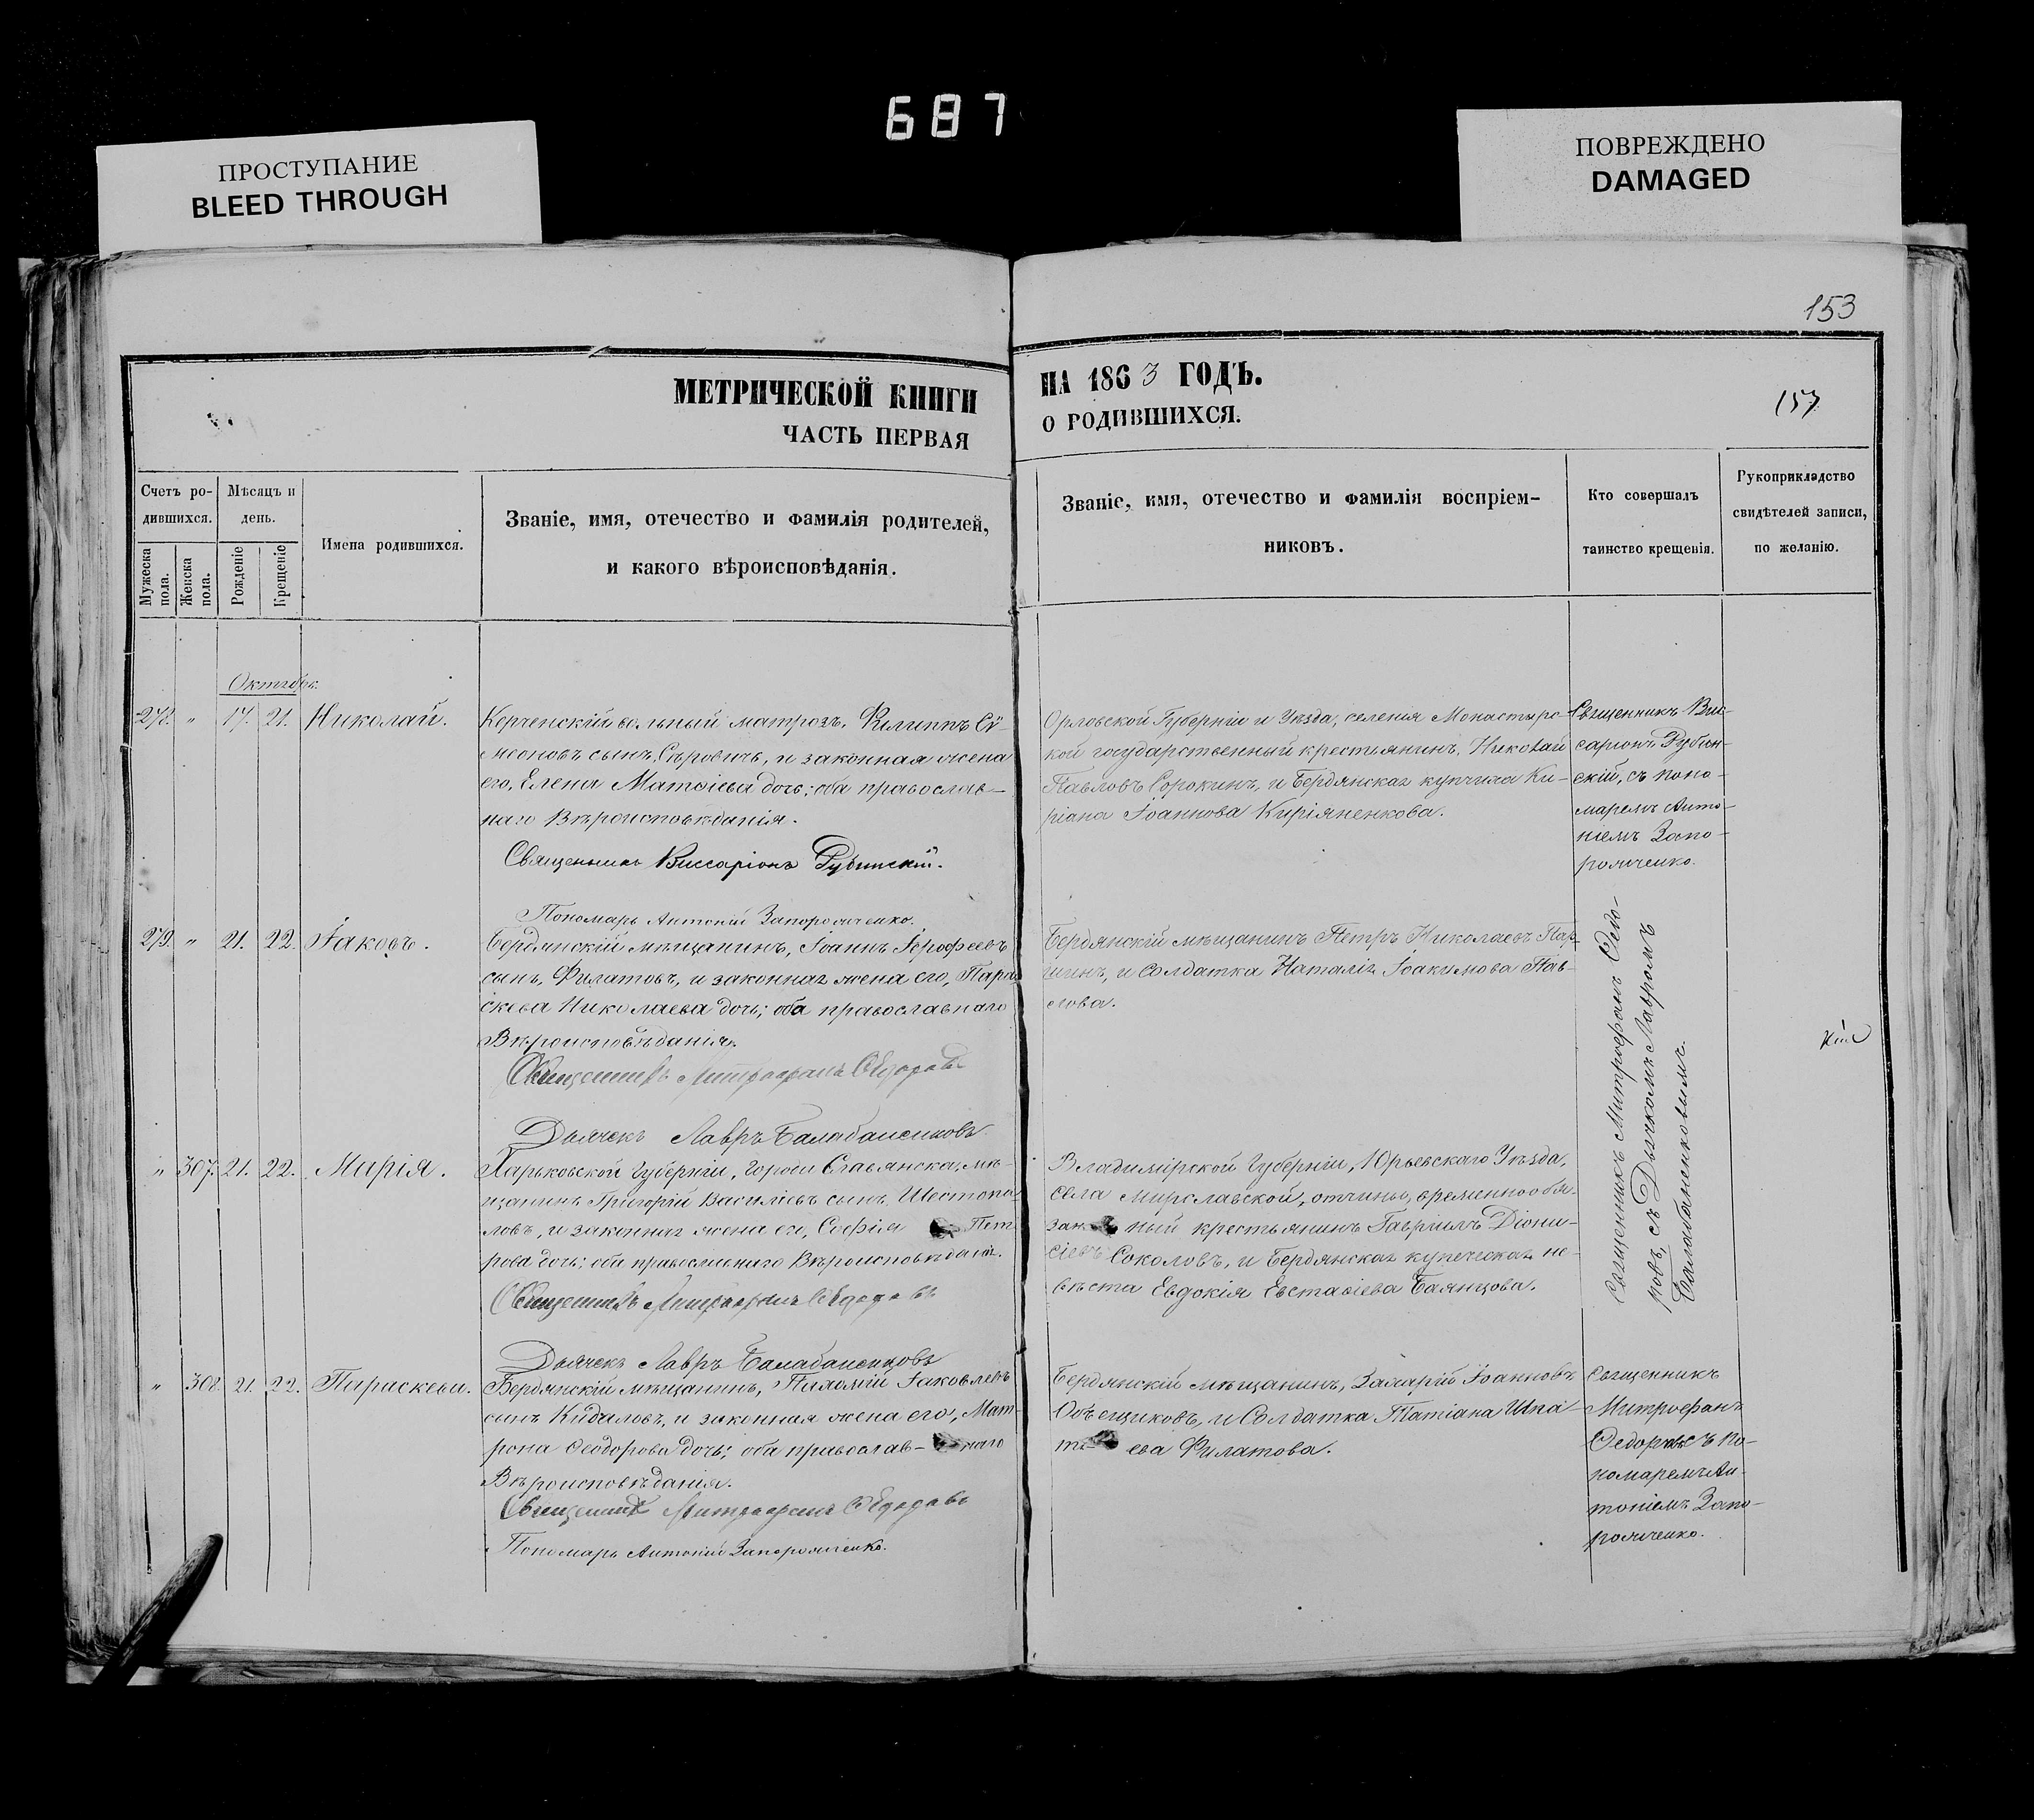 687
ПРОСТУПАНИЕ
BLEED THROUGH
ПОВРЕЖДЕНО
DAMAGED
153
МЕТРИЧЕСКОЙ КНИГИ
ЧАСТЬ ПЕРВАЯ
НА 1863 ГОДЪ.
О РОДИВШИХСЯ.
157
Счетъ ро-
дившихся.
Мужеска пола.
Женска пола.
Мѣсяцъ и
день.
Рожденіе
Крещеніе
Имена родившихся.
Званіе, имя, отечество и фамилія родителей,
и какого вѣроисповѣданія.
Званіе, имя, отечество и фамилія воспріем-
никовъ.
Кто совершалъ
таинство крещенія.
Рукоприкладство
свидѣтелей записи,
по желанію.
Октябрь.
278. " 17. 21. Николай.
Керченскій вольный матрозъ, Филиппъ Сѵ-
меоновъ сынъ, Сѣровичь, и законная жена
его, Елена Матѳіева дочь; оба православ-
наго Вѣроисповѣданія.
Священникъ Виссаріонъ Рубинскій.
Пономарь Антоній Запорожченко.
Орловской Губерніи и Уѣзда, селенія Монастырс-
кой государственный крестьянинъ, Николай
Павловъ Сорокинъ, и Бердянская купчиха Ки-
ріана Іоаннова Киріяненкова.
Священникъ Вис-
саріонъ Рубин-
скій, съ поно-
маремъ Анто-
ніемъ Запо-
рожченко.
279. " 21. 22. Іаковъ.
Бердянскій мѣщанинъ, Іоаннъ Іерофеевъ
сынъ, Филатовъ, и законная жена его, Пара-
скева Николаева дочь; оба православнаго
Вѣроисповѣданія.
Священникъ Митрофанъ Ѳедоровъ
Дьячекъ Лавръ Балабаненковъ.
Бердянскій мѣщанинъ Петръ Николаевъ Пар-
шинъ, и Солдатка Наталія Іоакимова Пав-
лова.
Священникъ Митрофанъ Ѳедо-
ровъ, съ Дьячкомъ Лавромъ
Балабаненковымъ.
" 307. 21. 22. Марія.
Харьковской Губерніи, Города Славянска, мѣ-
щанинъ Григорій Василіевъ сынъ, Шестопа-
ловъ, и законная жена его, Софія Пет-
рова дочь; оба православнаго Вѣроисповѣданія.
Священникъ Митрофанъ Ѳедоровъ
Дьячекъ Лавръ Балабаненковъ
Владимірской Губерніи, Юрьевскаго Уѣзда,
села Мирславской, отчины, временнообя-
зан ный крестьянинъ Гавріилъ Діони-
сіевъ Соколовъ, и Бердянская купеческая не-
вѣста Евдокія Евстаѳіева Баянцова.
" 308. 21. 22. Параскева.
Бердянскій мѣщанинъ, Пахомій Іаковлевъ
сынъ Кидаловъ, и законная жена его, Мат-
рона Ѳеодорова дочь; оба православ- наго
Вѣроисповѣданія.
Священникъ Митрофанъ Ѳедоровъ
Пономарь Антоній Запорожченко.
Бердянскій мѣщанинъ, Захарій Іоанновъ
Объещиковъ, и Солдатка Татіана Ипа-
ть ева Филатова.
Священникъ
Митрофанъ
Ѳедоровъ съ По-
номаремъ Ан-
тоніемъ Запо-
рожченко.